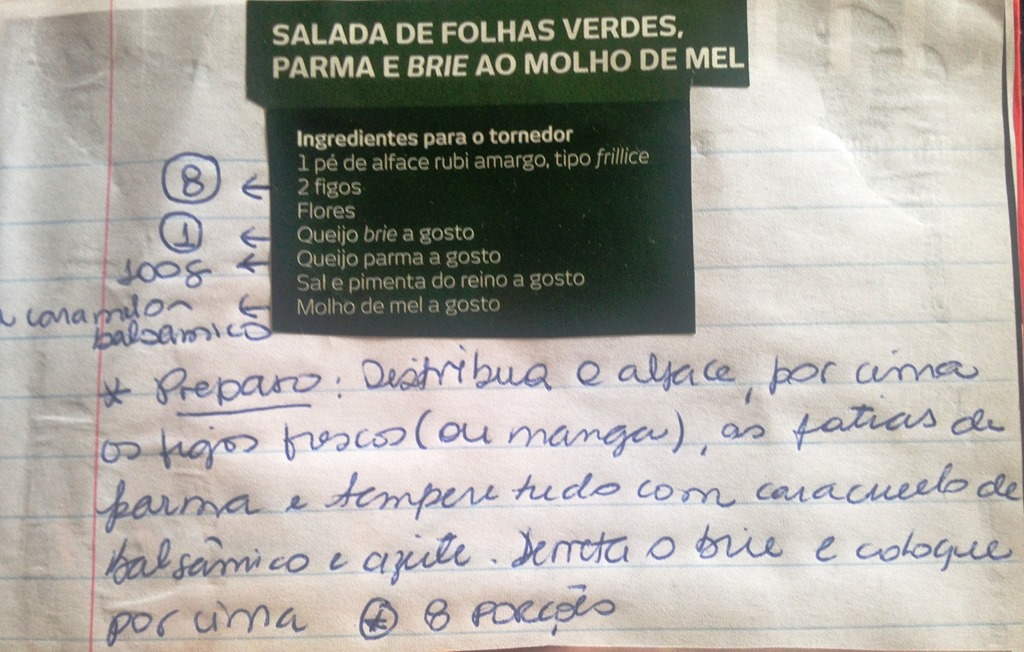 SALADA DE FOLHAS VERDES,
PARMA E BRIE AO MOLHO DE MEL
Ingredientes para o tornedor
1 pé de alface rubi amargo, tipo frillice
8 ← 2 figos
Flores
1 ← Queijo brie a gosto
100g ← Queijo parma a gosto
Sal e pimenta do reino a gosto
← Molho de mel a gosto
balsamico
* Preparo: Distribua a alface, por cima
os figos frescos (ou manga), as fatias de
parma e tempere tudo com caramelo de
balsâmico e azeite. Derreta o brie e coloque
por cima * 8 PORÇÕES